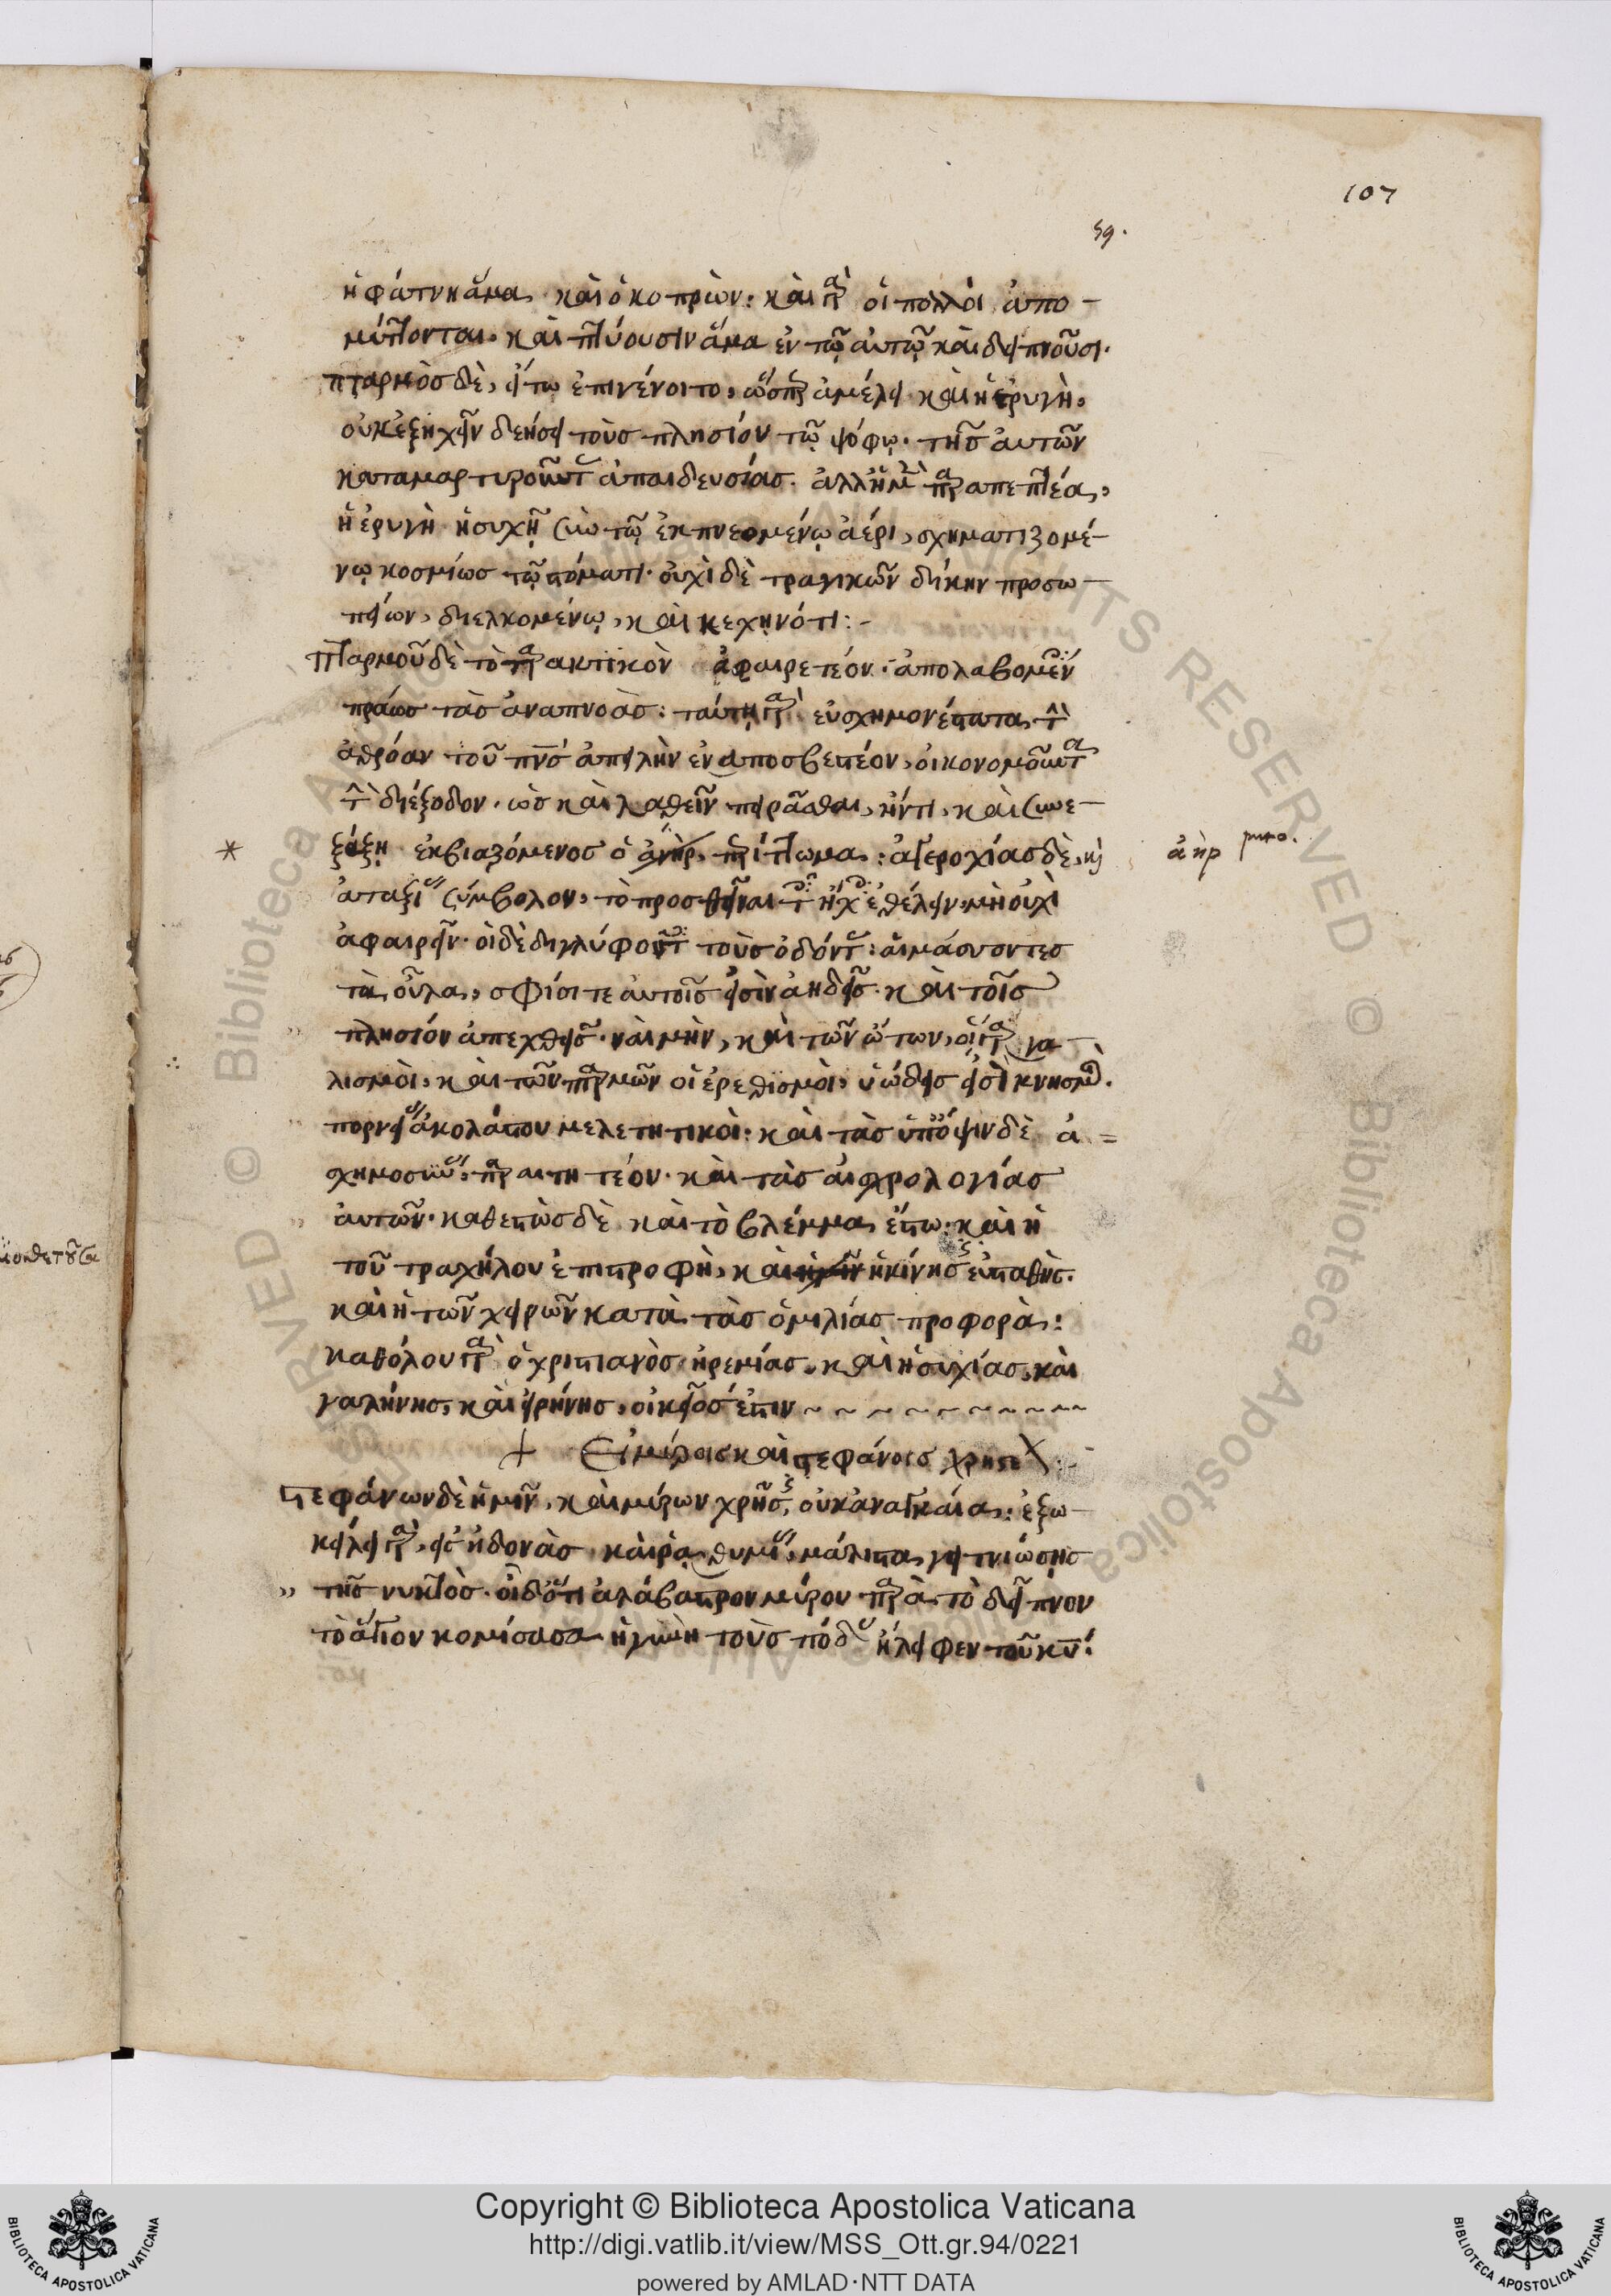 107
59.
ἡ φάτνη ἅμα, καὶ ὁ κοπρών: καὶ γὰρ οἱ πολλοὶ ἀπο-
μύττονται· καὶ πτύουσιν ἅμα ἐν τῷ αὐτῷ καὶ δειπνοῦσι.
πταρμὸς δὲ, εἴ τῳ ἐπιγένοιτο, ὥσπερ ἀμέλει καὶ ἡ ἐρυγὴ,
οὐκ ἐξηχεῖν δεήσει τοὺς πλησίον τῷ ψόφῳ· τῆς αὐτῶν
καταμαρτυροῦντας ἀπαιδευσίας. ἀλλ' ἡ μὲν παραπεμπτέα,
ἡ ἐρυγὴ ἡσυχῇ σὺν τῷ ἐκπνεομένῳ ἀέρι, σχηματιζομέ-
νῳ κοσμίως τῷ στόματι· οὐχὶ δὲ τραγικῶν δίκην προσω-
πείων, διελκομένῳ, καὶ κεχηνότι:-
Πταρμοῦ δὲ τὸ ταρακτικὸν ἀφαιρετέον· ἀπολαβομένους
πράως τὰς ἀναπνοάς: ταύτῃ γὰρ εὐσχημονέστατα, τὴν
ἀθρόαν τοῦ πνς ἀπειλὴν ἐναποσβεστέον, οἰκονομοῦντα
τὴν διέξοδον· ὡς καὶ λαθεῖν πειρᾶσθαι, ἤν τι, καὶ συνε-
ξάξῃ ἐκβιαζόμενος ὁ ἀνὴρ, περίττωμα: ἀγεροχίας δὲ, κὶ
ἀὴρ puto.
ἀταξίας σύμβολον, τὸ προσθεῖναι τοῖς ἤχοις ἐθέλειν, μὴ οὐχὶ
ἀφαιρεῖν· οἱ δὲ διγλύφοντες τοὺς ὀδόντας: αἱμάσσοντες
τὰ οὖλα, σφίσι τε αὐτοῖς εἰσὶν ἀηδεῖς· καὶ τοῖς
πλησίον ἀπεχθεῖς· ναὶ μὴν, καὶ τῶν ὤτων, οἱ γαρ γα
λισμοὶ, καὶ τῶν πταρμῶν οἱ ἐρεθισμοὶ, ὑώδεις εἰσὶ κνησμοὶ.
πορνείας ἀκολάστου μελετητικοὶ: καὶ τὰς ὑπόψιν δὲ ἀ=
σχημοσύνας, παραιτητέον· καὶ τὰς αἰσχρολογίας
αὐτῶν· καθεστὼς δὲ καὶ τὸ βλέμμα, ἔστω· καὶ ἡ
τοῦ τραχήλου ἐπιστροφὴ, καὶ ἡ κίνησις εὐσταθής.
καὶ ἡ τῶν χειρῶν κατὰ τὰς ὁμιλίας προφορὰ:
καθόλου γὰρ ὁ χριστιανὸς ἠρεμίας, καὶ ἡσυχίας, καὶ
γαλήνης, καὶ εἰρήνης, οἰκεῖος ἐστιν
+ Εἰ μύροις καὶ στεφάνοις χρηστέον:
Στεφάνων δὲ ἡμῖν, καὶ μύρων χρῆσις, οὐκ ἀναγκαία: ἐξω-
κείλει γὰρ, εἰς ἡδονὰς καὶ ῥᾳθυμίας, μάλιστα γειτνιώσης
τῆς νυκτός· οἶδ' ὅτι ἀλάβαστρον μύρου παρὰ τὸ δεῖπνον
τὸ ἅγιον κομίσασα ἡ γυνὴ τοὺς πόδας ἤλειφεν τοῦ κυ:
Copyright © Biblioteca Apostolica Vaticana
http://digi.vatlib.it/view/MSS_Ott.gr.94/0221
powered by AMLAD·NTT DATA